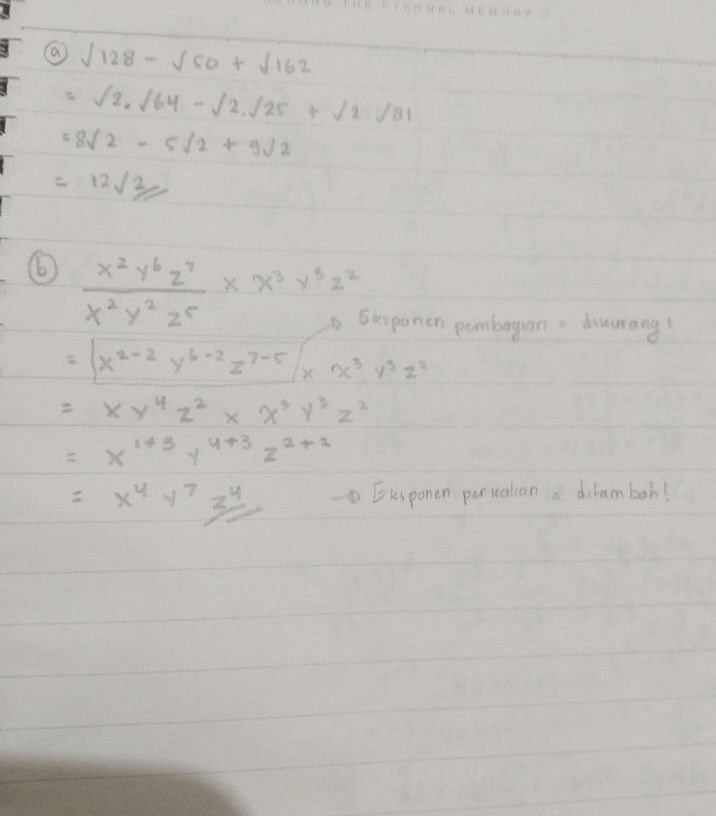 RECORD THE ETERNAL MEMORY
ⓐ √128 - √50 + √162
= √2.√64 - √2.√25 + √2.√81
= 8√2 - 5√2 + 9√2
= 12√2
ⓑ x²y⁶z⁷ / x²y²z⁵ × x³y³z²
→ Eksponen pembagian = dikurang!
= x²⁻²y⁶⁻²z⁷⁻⁵ × x³y³z²
= xy⁴z² × x³y³z²
= x¹⁺³y⁴⁺³z²⁺²
= x⁴y⁷z⁴ → Eksponen perkalian = ditambah!